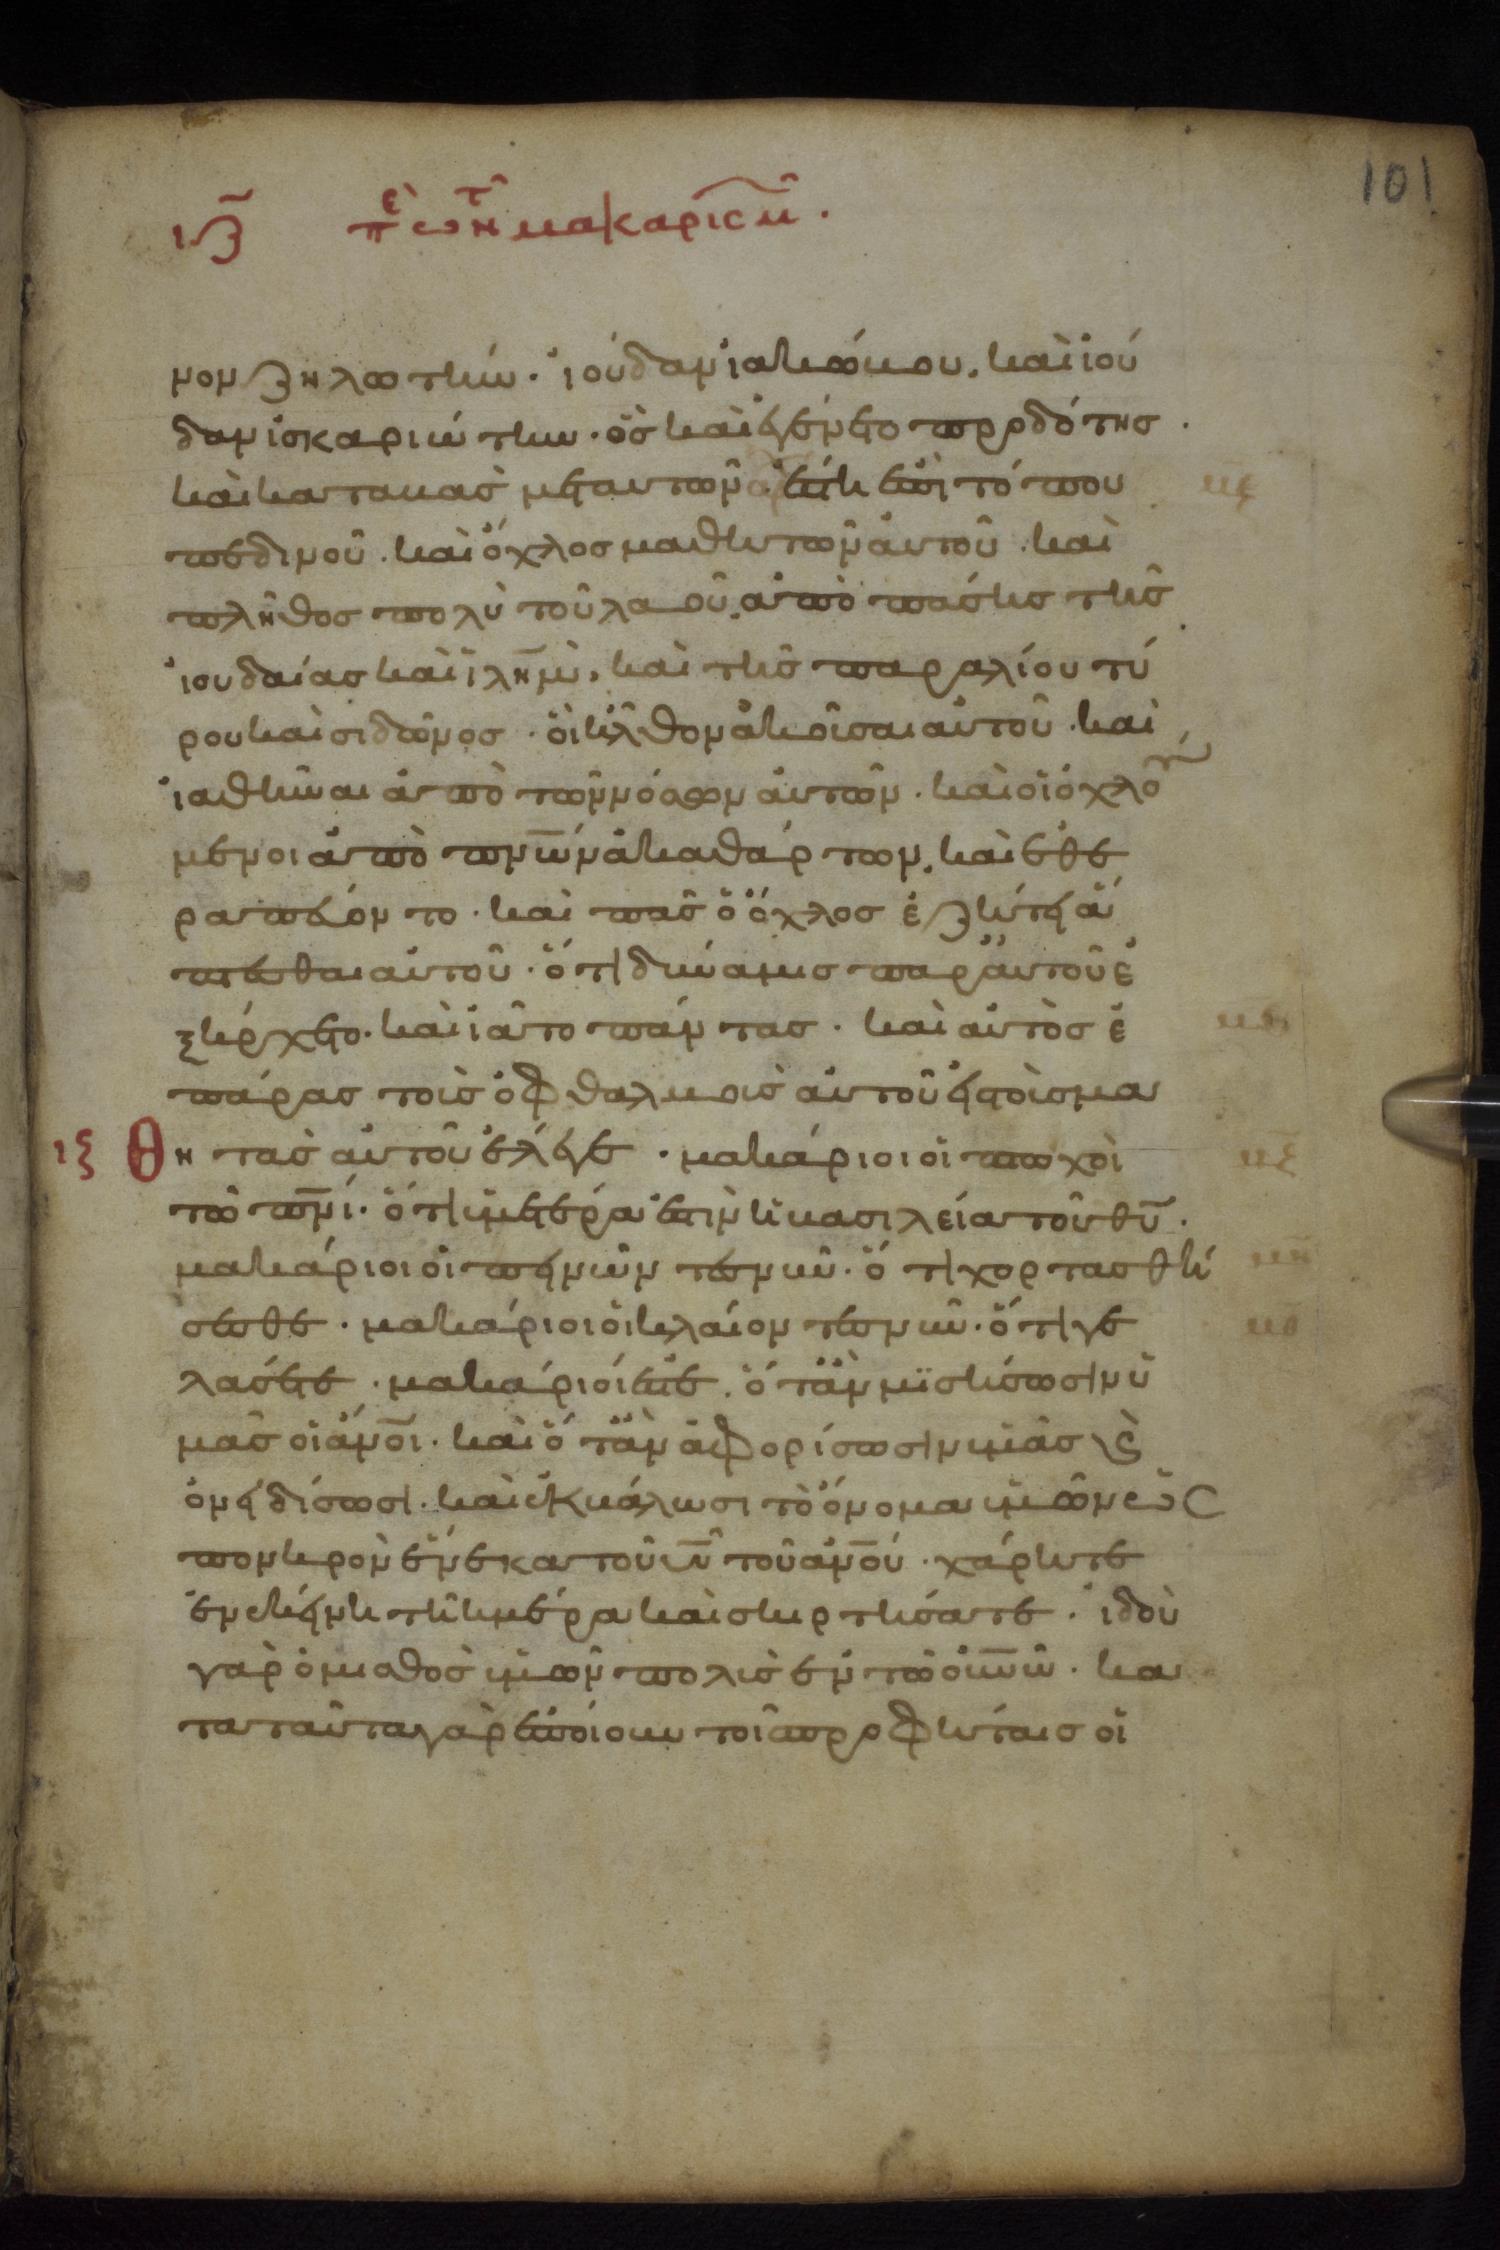 101
ιζ̃ πὲ τω̂ν μακαρισμ̂.
μον ζηλωτήν. ἰούδαν ἰακώβου. καὶ ἰού
δαν ἰσκαριώτην. ὃς καὶ ἐγένετο προδότης.
καὶ καταβὰς μετ αὐτῶν ἔστη ἐπὶ τόπου
πεδινοῦ. καὶ ὄχλος μαθητῶν αὐτοῦ. καὶ
πλῆθος πολὺ τοῦ λαοῦ. ἀπὸ πάσης τῆς
ἰουδαίας καὶ ἰλη̅μ. καὶ τῆς παραλίου τύ
ρου καὶ σιδῶνος. οἳ ἦλθον ἀκοῦσαι αὐτοῦ. καὶ
ἰαθῆναι ἀπὸ τῶν νόσων αὐτῶν. καὶ οἱ ὀχλού
μενοι ἀπὸ πν̅ων ἀκαθάρτων. καὶ ἐθε
ραπεύοντο. καὶ πᾶς ὁ ὄχλος ἐζήτει ἅ
πτεσθαι αὐτοῦ. ὅτι δύναμις παρ αὐτοῦ ἐ
ξήρχετο. καὶ ἰᾶτο πάντας. καὶ αὐτὸς ἐ
πάρας τοὺς ὀφθαλμοὺς αὐτοῦ εἰς τοὺς μα
ιξ θη τὰς αὐτοῦ ἔλεγε. μακάριοι οἱ πτωχοὶ
τῶ πν̅ι. ὅτι ὑμετέρα ἐστὶν ἡ βασιλεία τοῦ θυ̅.
μακάριοι οἱ πεινῶντες νῦν. ὅτι χορτασθή
σεσθε. μακάριοι οἱ κλαίοντες νῦν. ὅτι γε
λάσετε. μακάριοί ἐστε. ὅταν μισήσωσιν ὑ
μᾶς οἱ ἄνο̅ι. καὶ ὅταν ἀφορίσωσιν ὑμᾶς ϗ
ὀνειδίσωσι. καὶ ἐκβάλωσι τὸ ὄνομα ὑμῶν ὡς
πονηρὸν ἕνεκα τοῦ υυ̅ τοῦ ἀνο̅υ. χάρητε
ἐν ἐκείνη τῆ ἡμέρα καὶ σκιρτήσατε. ἰδοὺ
γὰρ ὁ μισθὸς ὑμῶν πολὺς ἐν τῶ οὐνω̅. κα
τα ταῦτα γὰρ ἐποίουν τοῖς προφήταις οἱ